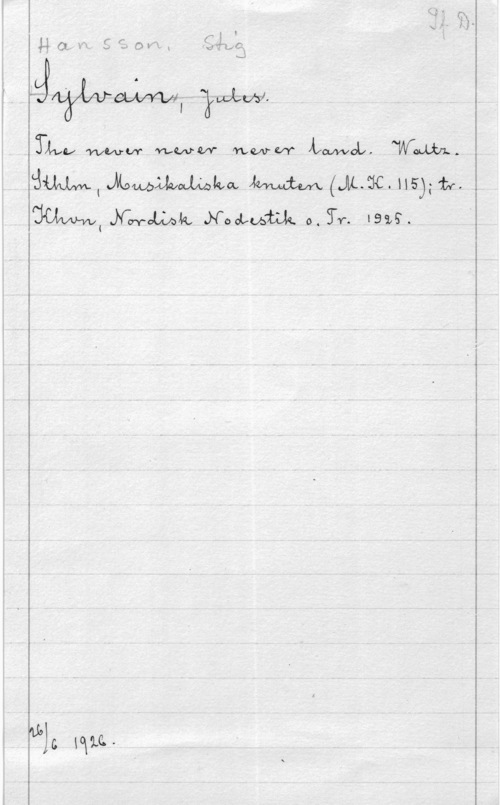 Gf D.
Hansson, Stig
Sylvain, Jules.
The never never never land. Waltz.
Sthlm, Musikaliska knuten (M.K. 115); tr.
Khvn, Nordisk Nodestik o. Tr. 1925.
26/6 1926.